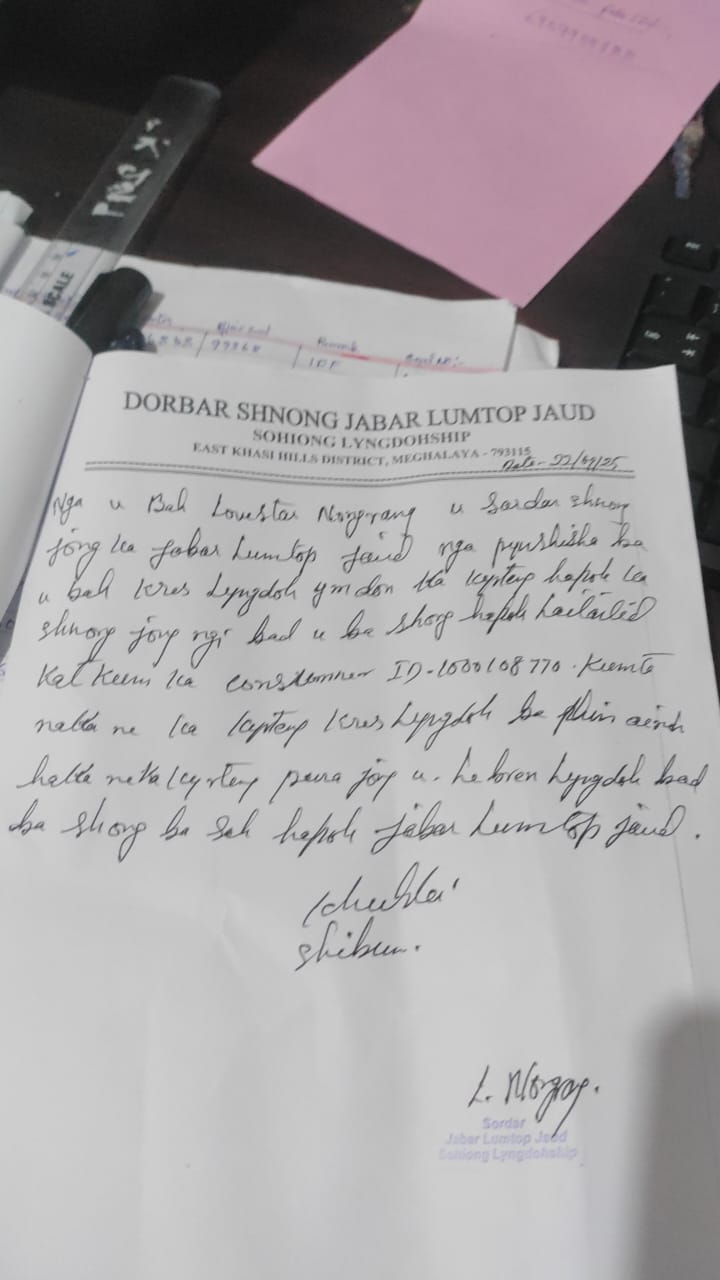 PNGS
SCALE
99968
DORBAR SHNONG JABAR LUMTOP JAUD
SOHIONG LYNGDOHSHIP
EAST KHASI HILLS DISTRICT, MEGHALAYA - 793115
Date - 22/09/25
Nga u Bah Lovestar Nongrang u Sordar shnong
jong ka Jabar Lumtop Jaud nga pynshisha ba
u bah Kres Lyngdoh ymdon ka kyrteng hapoh ka
shnong jong ngi bad u ba shong hapoh Laitailid
Kat kum ka constumner ID-1000108770. Kumta
nalka ne ka kyrteng Kres Lyngdoh ba phin
halka neka kyrteng para jong u. Lyngdoh bad
ba shong ba sah hapoh Jabar Lumtop Jaud.
Khublei
Shibun.
L. Nongrang.
Sordar
Jabar Lumtop Jaud
Sohiong Lyngdohship